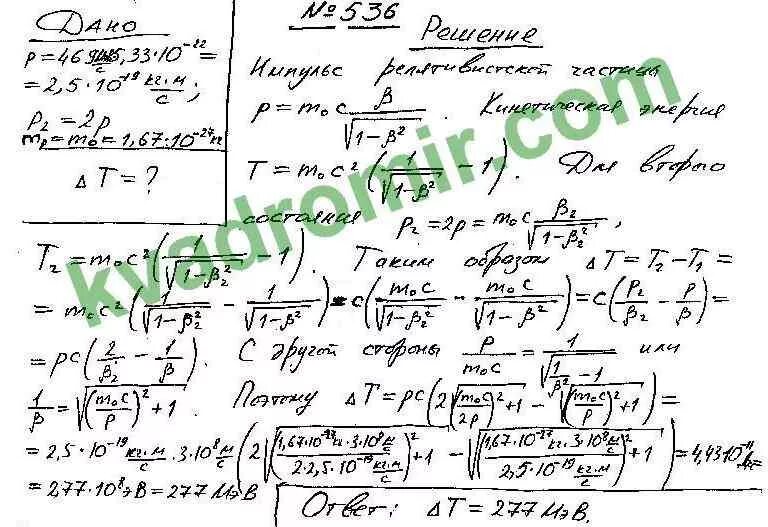 № 536
Дано
p = 469 МэВ/c · 5,33·10⁻²² =
= 2,5·10⁻¹⁹ кг·м/с;
P₂ = 2p
mp = m₀ = 1,67·10⁻²⁷ кг
ΔT = ?
Решение
Импульс релятивистской частицы
p = m₀c β/√(1-β²). Кинетическая энергия
T = m₀c²(1/√(1-β²) - 1). Для второго
состояния P₂ = 2p = m₀c β₂/√(1-β₂²),
T₂ = m₀c²(1/√(1-β₂²) - 1). Таким образом ΔT = T₂ - T₁ =
= m₀c²(1/√(1-β₂²) - 1/√(1-β²)) = c(m₀c/√(1-β₂²) - m₀c/√(1-β²)) = c(P₂/β₂ - P/β) =
= pc(2/β₂ - 1/β). С другой стороны p/m₀c = 1/√(1/β² - 1) или
1/β = √((m₀c/p)² + 1). Поэтому ΔT = pc(2√((m₀c/2p)² + 1) - √((m₀c/p)² + 1)) =
= 2,5·10⁻¹⁹ кг·м/с · 3·10⁸ м/с (2√((1,67·10⁻²⁷ кг·3·10⁸ м/с / 2·2,5·10⁻¹⁹ кг·м/с)² + 1) - √((1,67·10⁻²⁷ кг·3·10⁸ м/с / 2,5·10⁻¹⁹ кг·м/с)² + 1)) = 4,43·10⁻¹¹ Дж =
= 277·10⁸ эВ = 277 МэВ
Ответ: ΔT = 277 МэВ.
kvadromir.com